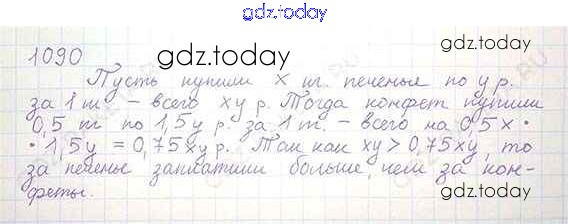 gdz.today
1090
gdz.today
gdz.today
Пусть купили x кг. печенья по у р.
за 1 кг – всего xy р. Тогда конфет купили
0,5 кг по 1,5у р. за 1 кг. – всего на 0,5x ·
· 1,5y = 0,75xy р. Так как xy > 0,75xy, то
за печенье заплатили больше, чем за кон-
феты.
gdz.today
gdz.today